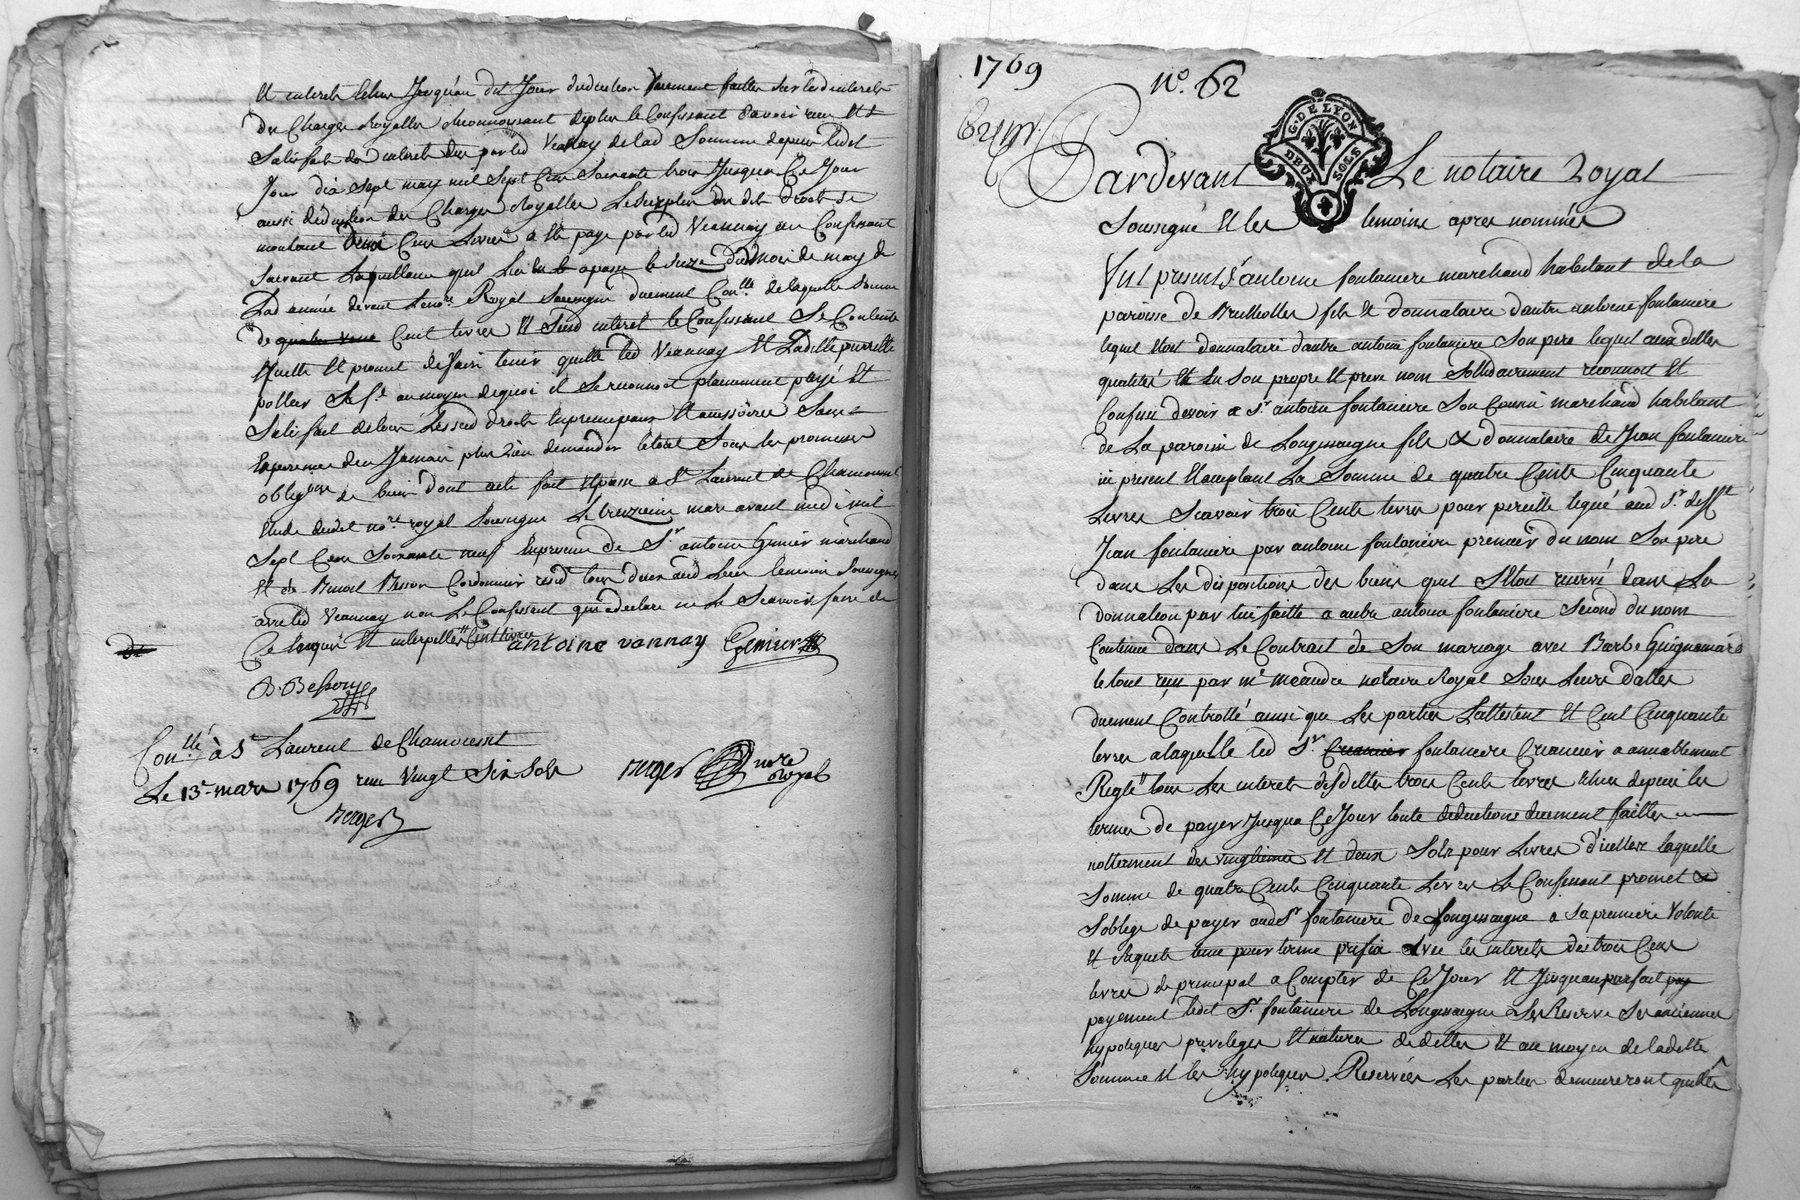 et interets échus jusqu'au dit jour deduction duement faitte sur lesd interets
des charges Royalles reconnoissant deplus le Confessant d'avoir reçu et
satisfait des interets dus par led Veannay de lad somme depuis ledit
jour dix sept may mil sept Cens soixante trois jusqua Ce jour
aussi deduction des Charges Royalles Le surplus des dits droits se
montant Cens Livres a été payé par led Veannay au Confessant
suivant la quittance quil lui en a passé le seize du mois de may de
Lad année devant le nore Royal soussigné duement Conllé de laquelle somme
de quatre vins Cent livres et susd interets le Confessant se Contente
quitte et promet defaire tenir quitte led Veannay et Ladille
au moyen dequoi il se reconnoit plainement payé et
satisfait de tous Lesusd droits en principaux et accessoires sans
esperance den jamais plus rien demander le tout sous les promesses
obligons de biens dont acte fait et passé à St Laurent de Chamousset
etude dudit nore royal soussigné Le treizieme mars avant midi mil
sept Cens soixante neuf En presence de Sr antoine Grimier marchand
et de Benoit Besson Cordonnier residts tous deux aud Lieu temoins soussignés
avec led Veannay non Le Confessant qui a declaré ne le scavoir faire de
Ce enquis et interpellé Cent livres
antoine vannay Grimier
de
B. Besson
Conllé à St Laurent de Chamousset
Le 13e mars 1769 reçu Vingt six sols
nore Royal
1769
No. 62
G. DE LYON
DEUX SOLS
Pardevant Le notaire Royal
soussigné et les temoins apres nommés
fut present Sr antoine fontaniere marchand habitant de la
paroisse de Brullolles fils et donnataire d'autre antoine fontaniere
lequel etoit donnataire d'autre antoine fontaniere son pere lequel aux dittes
qualités et en son propre et privé nom sollidairement reconnoit et
Confesse devoir a Sr antoine fontaniere son Cousin marchand habitant
de La paroisse de Longessaigne fils & donnataire de Jean fontaniere
ici present et acceptant La somme de quatre Cents Cinquante
Livres scavoir trois Cents livres pour pareille legué aud Sr defft
Jean fontaniere par antoine fontaniere premier du nom son pere
dans Les dispositions des biens quil setoit reservé dans La
donnation par lui faitte a autre antoine fontaniere second du nom
Contenue dans Le Contrat de son mariage avec Barbe Guignemard
le tout reçu par me meandre notaire Royal sous Leurs dattes
duement Controllé ainsi que Les parties L'attestent et Cent Cinquante
livres a laquelle led Sr Creancier fontaniere Creancier a amiablement
Reglé tous Les interets desdittes trois Cents livres echus depuis les
termes de payer jusqua Ce jour toute deductions duement faittes
nottament des vingtiemes et deux sols pour Livres d'icelles laquelle
somme de quatre Cents Cinquante Livres Le Confessant promet &
soblige de payer aud Sr fontaniere de Longessaigne a sa premiere volonté
et requete pour terme prefix avec les interets des trois Cens
livres de principal a Compter de Ce jour et jusquau parfait pay
payement ledit Sr fontaniere de Longessaigne se Reserve ses anciennes
hypoteques privileges et nature de dettes et au moyen de ladte
somme et les hypoteques Reservées Les parties demeureront quittes